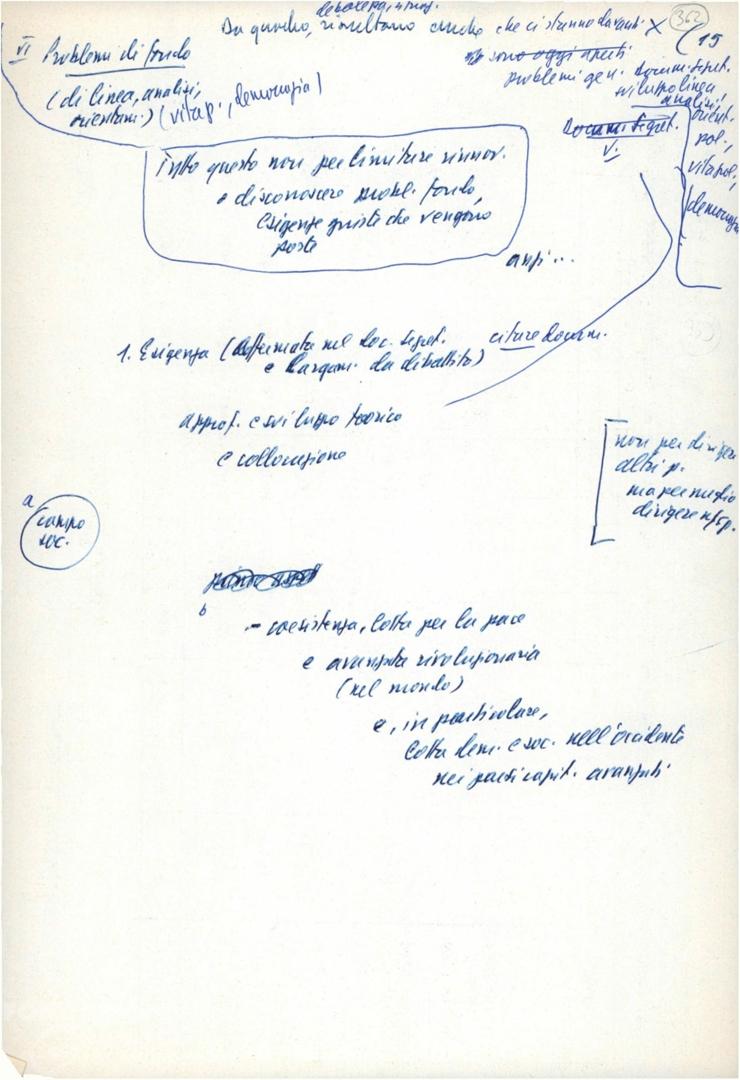 debolezza,
Da quadro, risultano anche che ci stanno davanti x
362
15
VI Problemi di fondo
(di linea, analisi,
orientam.) (vita p., democrazia)
sono oggi aperti
problemi gen.
Docum. segret.
sviluppo linea,
analisi,
orient.
pol.,
vita pol.,
democrazia
Docum. Segret.
V.
Tutto questo non per limitare rinnov.
e disconoscere probl. fondo,
Esigenze giuste che vengono
poste
anzi...
1. Esigenza (affermata nel doc. segret. citare docum.
e largam. da dibattito)
approf. e sviluppo teorico
e collocazione
non per dirigere
altri p.
ma per meglio
dirigere
a
campo
soc.
b
- coesistenza, lotta per la pace
e avanzata rivoluzionaria
(nel mondo)
e, in particolare,
lotta dem. e soc. nell'occidente
nei paesi capit. avanzati